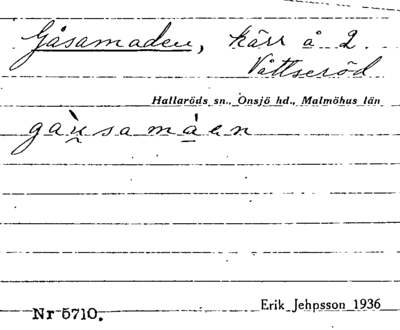 Gåsamaden, kärr å 2.
Våttseröd
Hallaröds sn., Onsjö hd., Malmöhus län
gàu̯samáen
Nr 5710.
Erik Jehpsson 1936